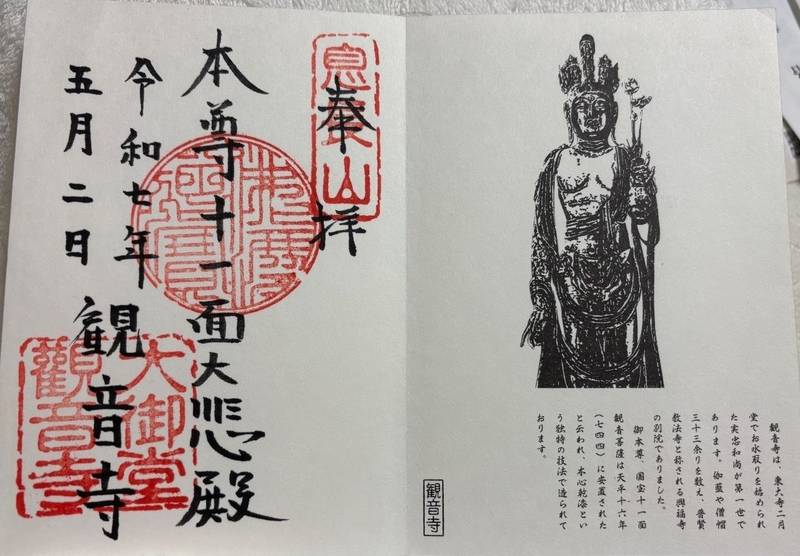 奉拝
息長山
本尊十一面大悲殿
令和七年
五月二日
観音寺
大御堂
觀音寺
観音寺は、東大寺二月
堂でお水取りを始められ
た実忠和尚が第一世で
あります。伽藍や僧帽
三十三余りを数え、普賢
教法寺と称される興福寺
の別院でありました。
御本尊、国宝十一面
観音菩薩は天平十六年
(七四四)に安置された
と云われ、木心乾漆とい
う独特の技法で造られて
おります。
観音寺